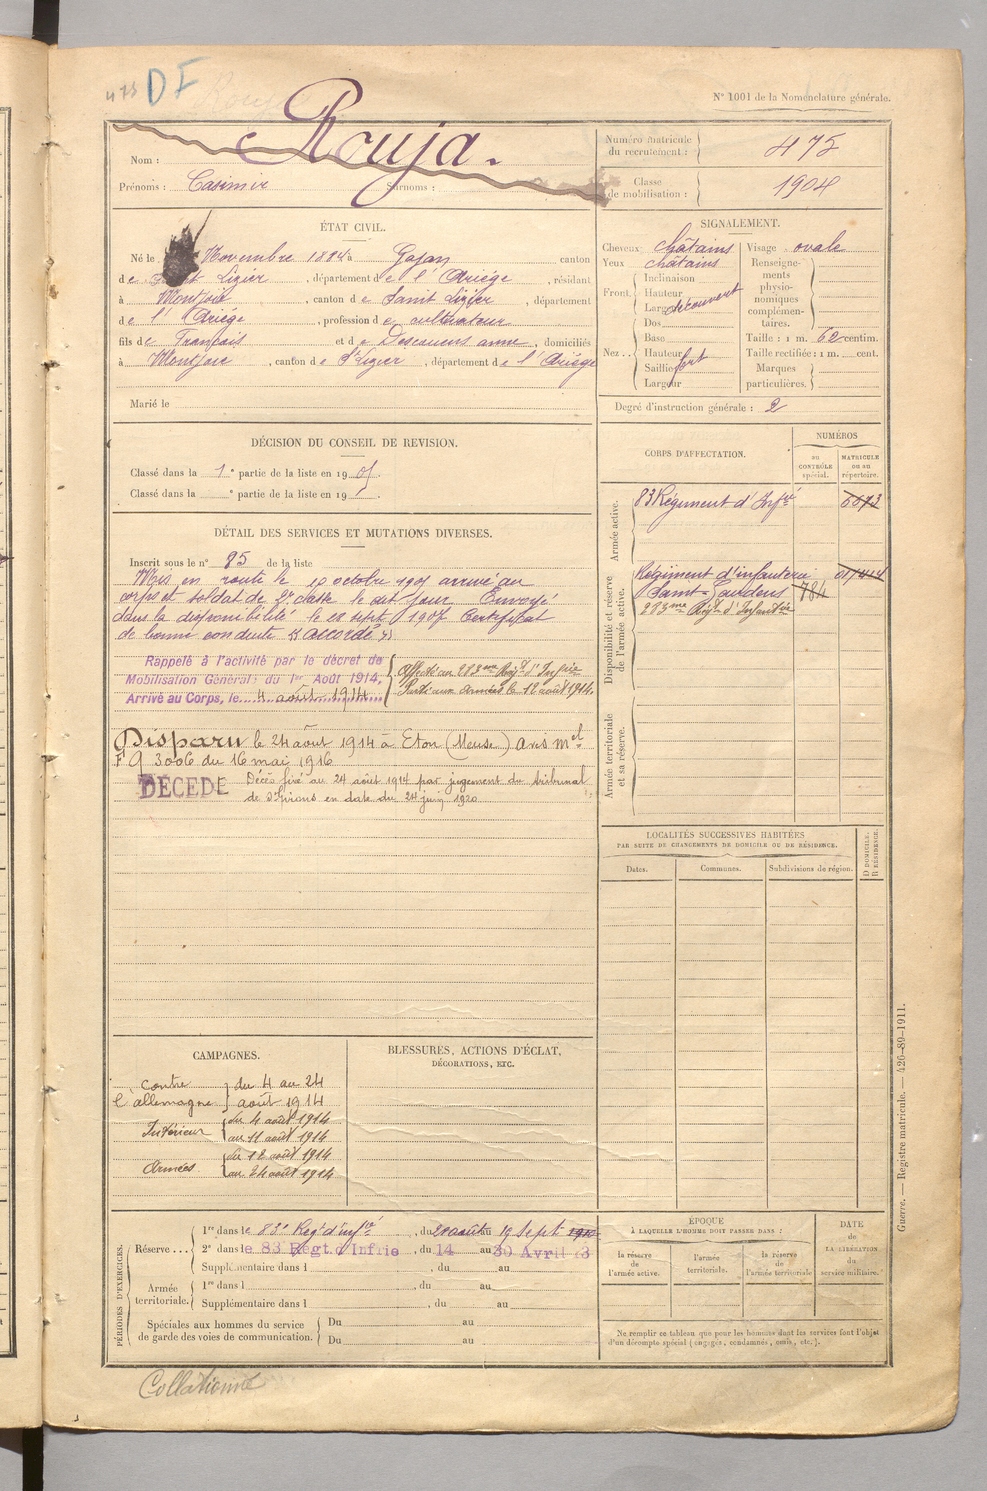 475 DF
N° 1001 de la Nomenclature générale.
Nom : Rouja.
Prénoms : Casimir Surnoms :
Numéro matricule du recrutement : 475
Classe de mobilisation : 1904
ÉTAT CIVIL.
Né le Novembre 1884 à Gajan canton
de Saint Lizier, département de l'Ariège, résidant
à Montjoie, canton de Saint Lizier, département
de l'Ariège, profession de cultivateur
fils de François et de Descouens anne, domiciliés
à Montjoie, canton de St Lizier, département de l'Ariège
Marié le
SIGNALEMENT.
Cheveux châtains
Yeux châtains
Front. Inclinaison
Hauteur
Larg découvert
Nez... Dos
Base
Hauteur
Saillie fort
Largeur
Visage ovale
Renseignements physionomiques complémentaires.
Taille : 1 m. 62 centim.
Taille rectifiée : 1 m. cent.
Marques particulières.
Degré d'instruction générale : 2
DÉCISION DU CONSEIL DE REVISION.
Classé dans la 1e partie de la liste en 1905.
Classé dans la e partie de la liste en 19
DÉTAIL DES SERVICES ET MUTATIONS DIVERSES.
Inscrit sous le n° 95 de la liste
Mis en route le octobre 1905 arrivé au
corps et soldat de 2e classe le dit jour Envoyé
dans la disponibilité le 28 sept 1907 Certificat
de bonne conduite "accordé"
Rappelé à l'activité par le décret de
Mobilisation Générale du 1er Août 1914,
Arrivé au Corps, le 4 août 1914
Affecté au 283me Régt d'Infrie
Parti aux Armées le 12 août 1914.
Disparu le 24 août 1914 à Eton (Meuse) Avis Mel
F9 3006 du 16 mai 1916
DÉCÉDÉ Décès fixé au 24 août 1914 par jugement du tribunal
de St Girons en date du 24 juin 1920
CORPS D'AFFECTATION.
NUMÉROS
au CONTRÔLE spécial.
MATRICULE ou au répertoire.
Armée active.
83 Régiment d'Infie
Disponibilité et réserve de l'armée active.
Régiment d'infanterie
Saint-Gaudens 784
283me Régt d'Infanterie
Armée territoriale et sa réserve.
LOCALITÉS SUCCESSIVES HABITÉES
PAR SUITE DE CHANGEMENTS DE DOMICILE OU DE RÉSIDENCE.
Dates. Communes. Subdivisions de région.
D DOMICILE. R RÉSIDENCE.
CAMPAGNES.
contre l'allemagne du 4 au 24 août 1914
Intérieur du 4 août 1914
au 11 août 1914
Armées du 12 août 1914
au 24 août 1914
BLESSURES, ACTIONS D'ÉCLAT,
DÉCORATIONS, ETC.
PÉRIODES D'EXERCICES.
Réserve... 1re dans le 83e Reg d'infie, du 28 août au 19 Sept 1910
2e dans le 83 Régt. d'Infrie, du 14 au 30 Avril 13
Supplémentaire dans l , du au
Armée territoriale. 1re dans l , du au
Supplémentaire dans l , du au
Spéciales aux hommes du service de garde des voies de communication. Du au
Du au
ÉPOQUE
À LAQUELLE L'HOMME DOIT PASSER DANS :
la réserve de l'armée active.
l'armée territoriale.
la réserve de l'armée territoriale
DATE de LA LIBÉRATION du service militaire.
Ne remplir ce tableau que pour les hommes dont les services font l'objet
d'un décompte spécial (engagés, condamnés, omis, etc.).
Guerre. — Registre matricule. — 426-89-1911.
Collationné